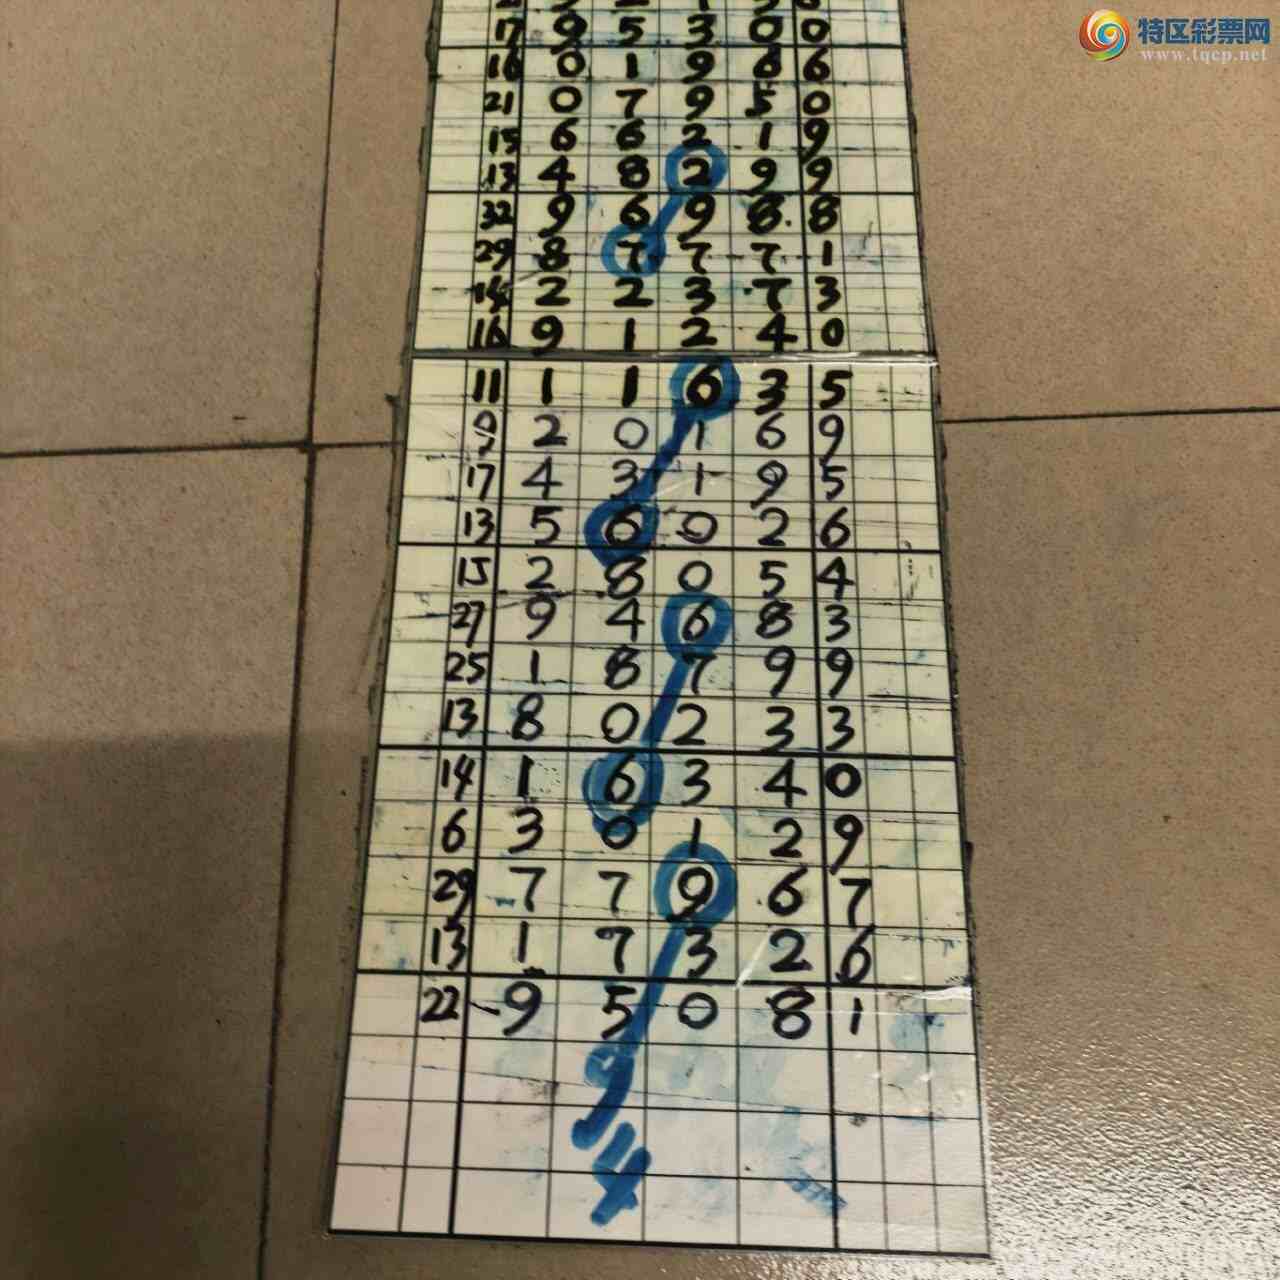 特区彩票网
www.tqcp.net
17 9 5 3 0 0
16 0 1 9 6 6
21 0 7 9 5 0
15 6 6 2 1 9
13 4 8 2 9 9
32 9 6 9 8 8
29 8 7 7 7 1
14 2 2 3 7 3
16 9 1 2 4 0
11 1 1 6 3 5
9 2 0 1 6 9
17 4 3 1 9 5
13 5 6 0 2 6
15 2 8 0 5 4
27 9 4 6 8 3
25 1 8 7 9 9
13 8 0 2 3 3
14 1 6 3 4 0
6 3 0 1 2 9
29 7 7 9 6 7
13 1 7 3 2 6
22 9 5 0 8 1
9
4